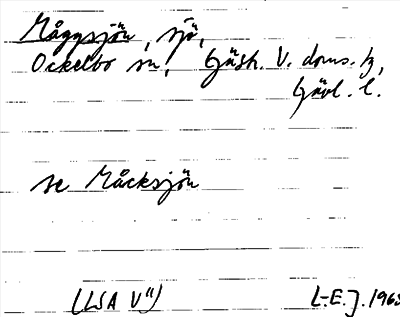 Måggsjön, sjö,
Ockelbo sn, Gästr. V. doms. tg,
Gävl. l.
se Måcksjön
(LSA V")
L-E. J. 1963